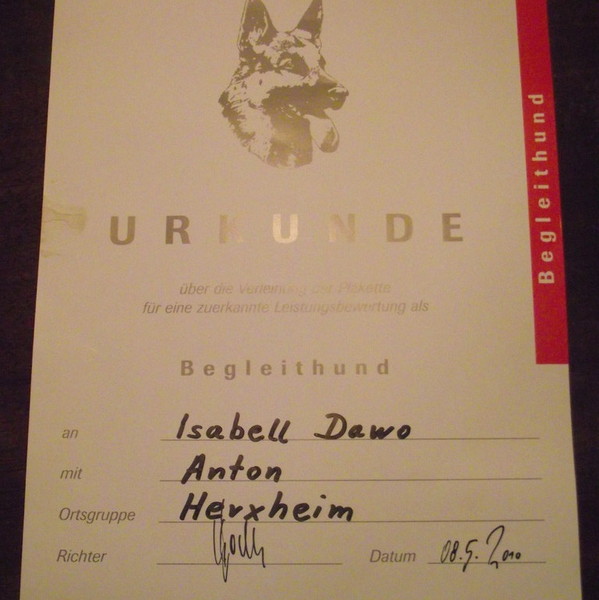 URKUNDE
über die Verleihung der Plakette
für eine zuerkannte Leistungsbewertung als
Begleithund
an Isabell Dawo
mit Anton
Ortsgruppe Herxheim
Richter Datum 08.5.2010
Begleithund